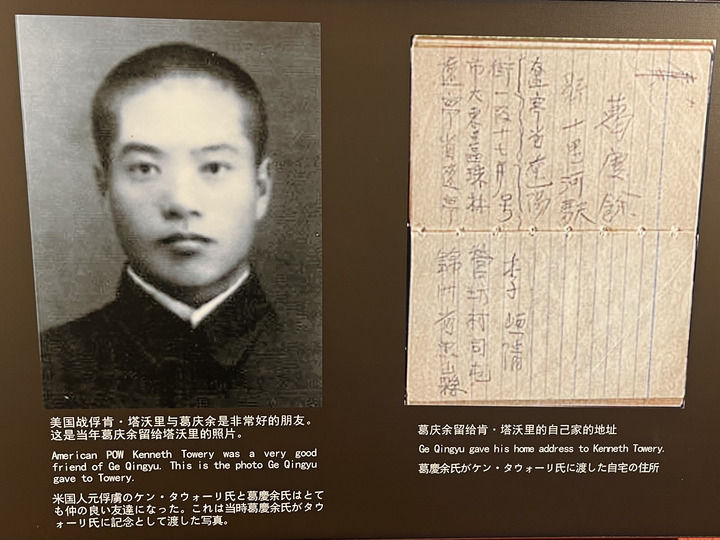 美国战俘肯·塔沃里与葛庆余是非常好的朋友。
这是当年葛庆余留给塔沃里的照片。
American POW Kenneth Towery was a very good
friend of Ge Qingyu. This is the photo Ge Qingyu
gave to Towery.
米国人元俘虜のケン・タウォーリ氏と葛慶余氏はとて
も仲の良い友達になった。これは当時葛慶余氏がタウ
ォーリ氏に記念として渡した写真。
葛慶餘
十里河駅
街一段十七
市大東區珠林
李
錦州省
葛庆余留给肯·塔沃里的自己家的地址
Ge Qingyu gave his home address to Kenneth Towery.
葛慶余氏がケン・タウォーリ氏に渡した自宅の住所